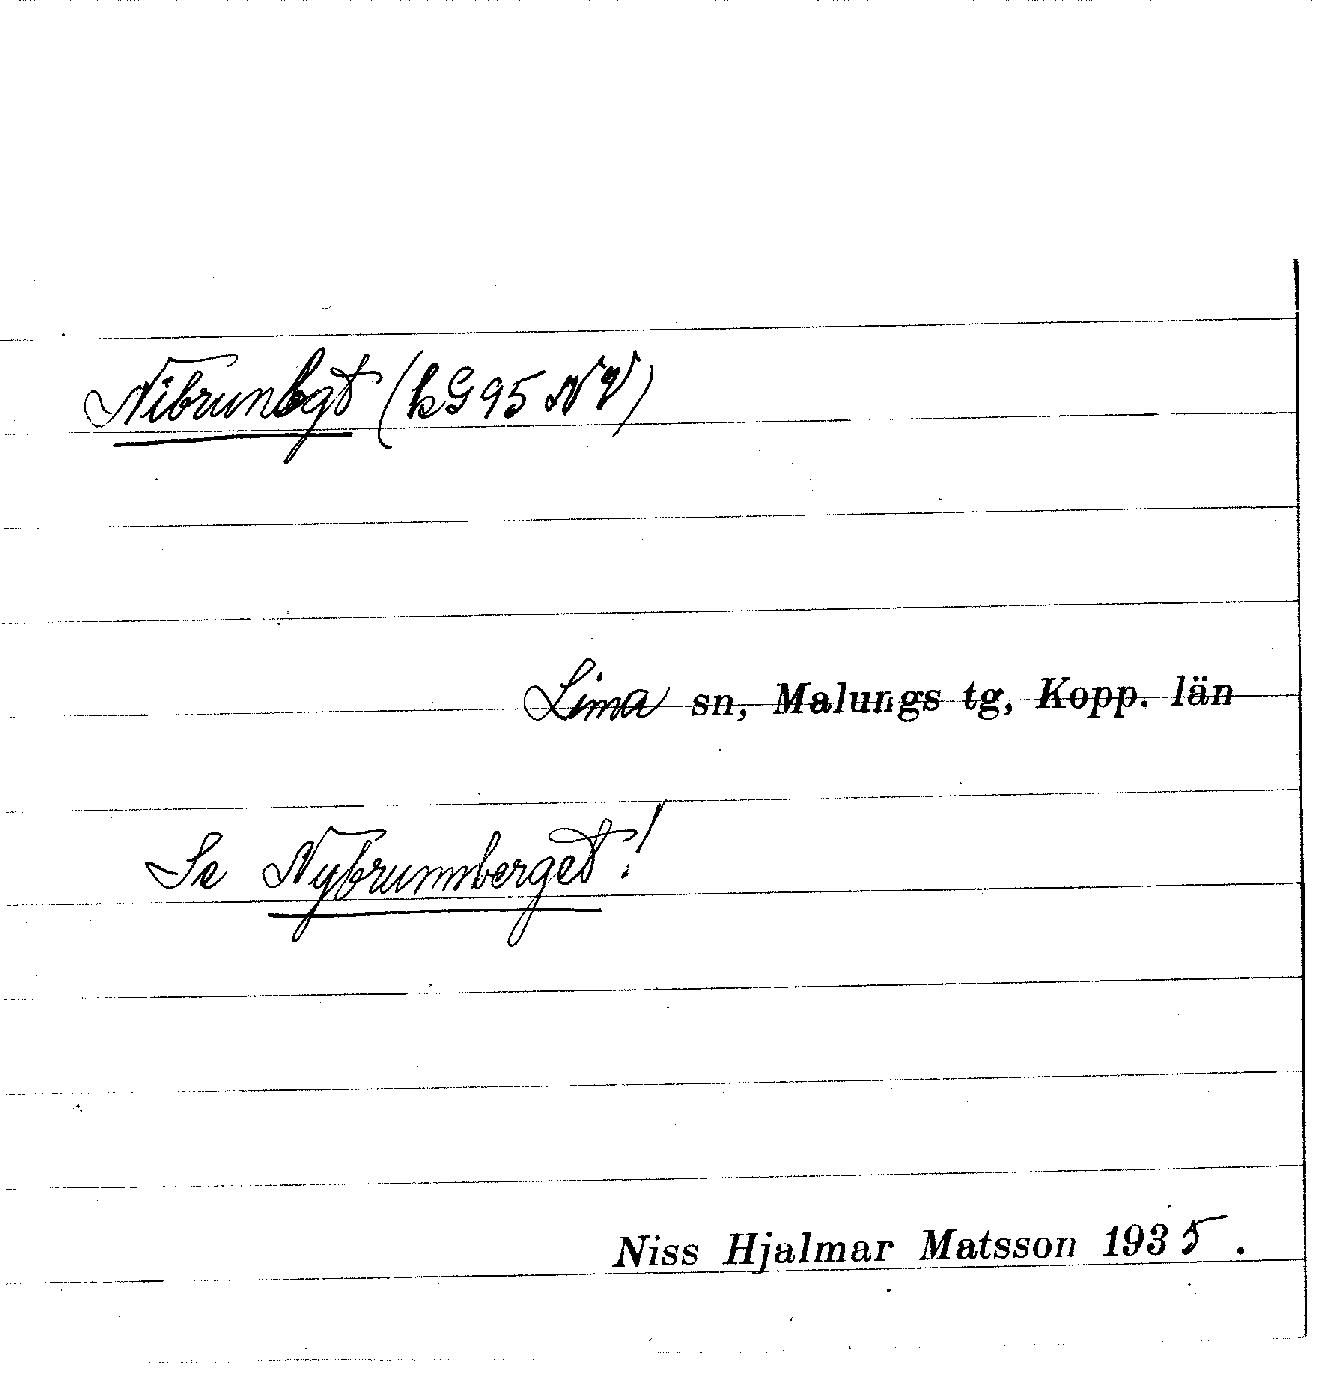 Nibrunbgt (kG95 NV)
Lima sn, Malungs tg, Kopp. län
Se Nybrunnberget!
Niss Hjalmar Matsson 1935.